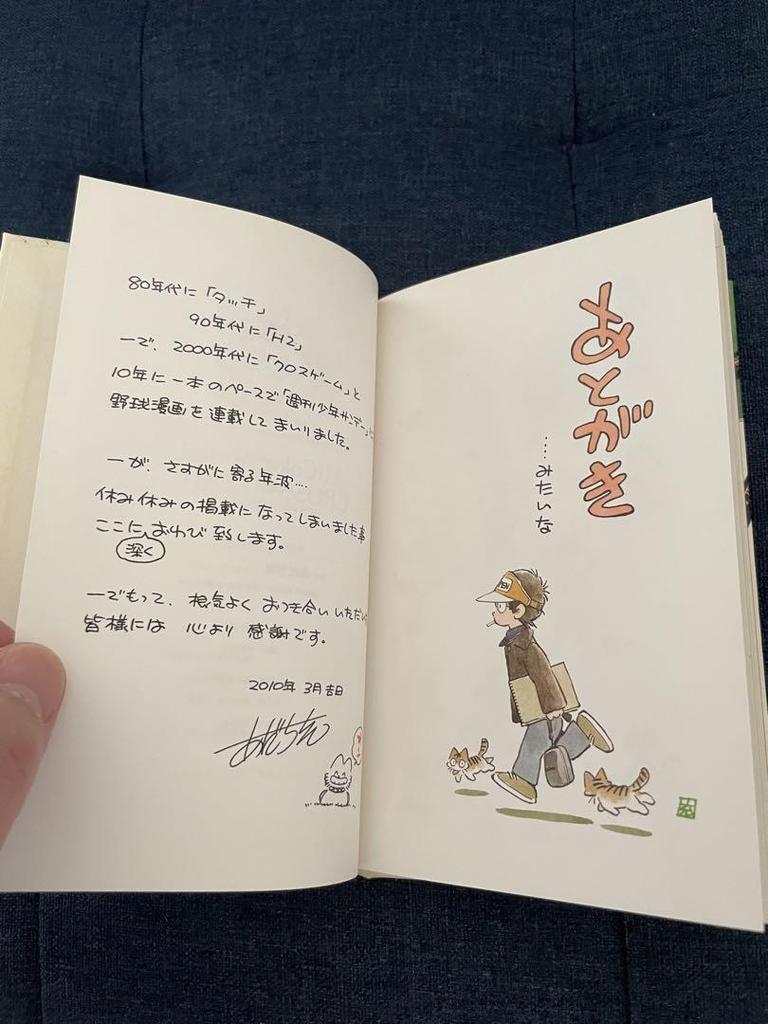 あとがき
‥‥みたいな
80年代に「タッチ」
90年代に「H2」
一で、2000年代に「クロスゲーム」と
10年に一本のペースで「週刊少年サンデー」
野球漫画を連載してまいりました。
一が、さすがに寄る年波‥‥
休み休みの掲載になってしまいました事
ここに深くおわび致します。
一でもって、根気よくおつき合いいただい
皆様には 心より 感謝です。
2010年 3月吉日
あだち充